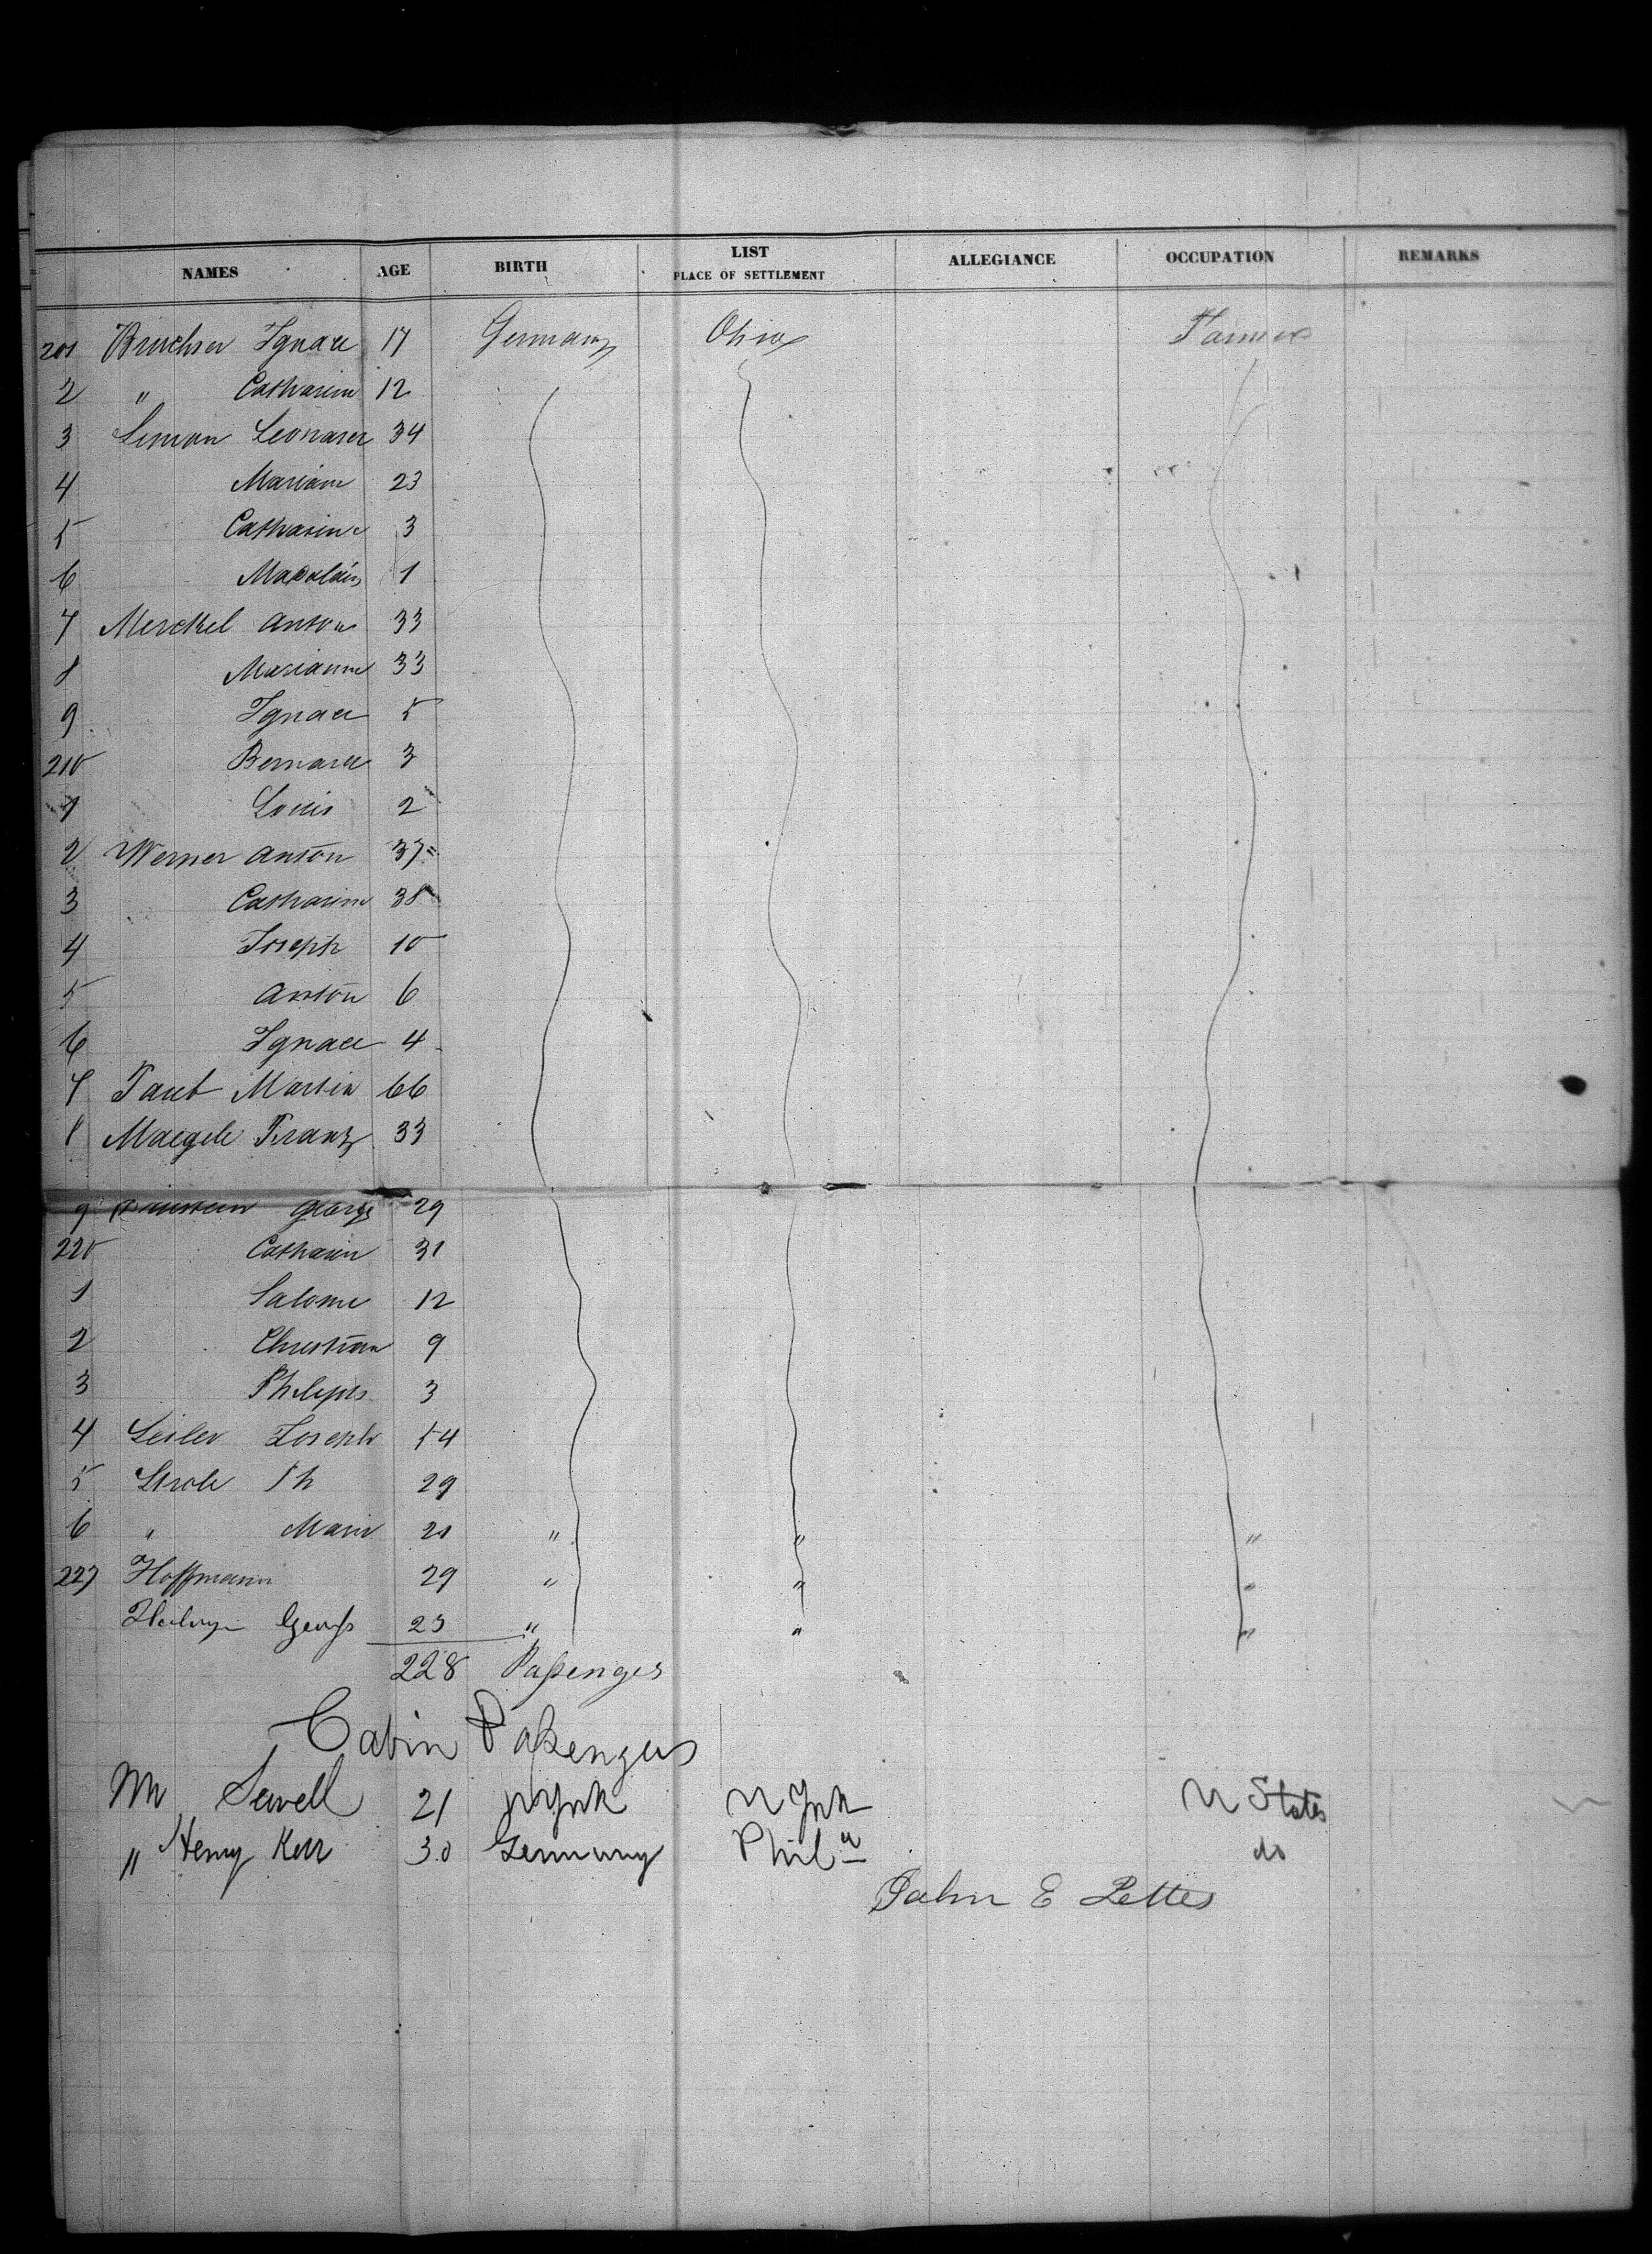 NAMES AGE BIRTH LIST ALLEGIANCE OCCUPATION REMARKS
PLACE OF SETTLEMENT
201 Ignace 17 Germany Ohio Farmer
2 " Catharin 12
3 Simon Leonard 34
4 Mariann 23
5 Catharine 3
6 Madalain 1
7 Merckel Anton 33
8 Marianne 33
9 Ignace 5
210 Bernard 3
1 Louis 2
2 Werner Anton 37
3 Catharine 38
4 Joseph 10
5 Anton 6
6 Ignace 4
7 Martin 66
8 Maegele Frantz 33
9 George 29
220 Catharin 31
1 Salome 12
2 Christian 9
3 Philipps 3
4 Seiler Joseph 54
5 Ph 29
6 " Marie 21 " " "
227 Hoffmann 29 " " "
Georg 23 " " "
228 Paßenges
Cabin Paßengers
Mr Sewell 21 N York N York U States
" Henry Kerr 30 Germany Phila do
John E Pettes